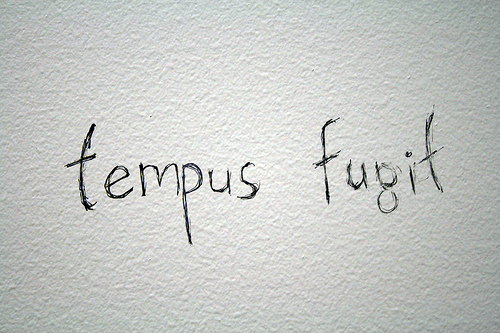 tempus fugit